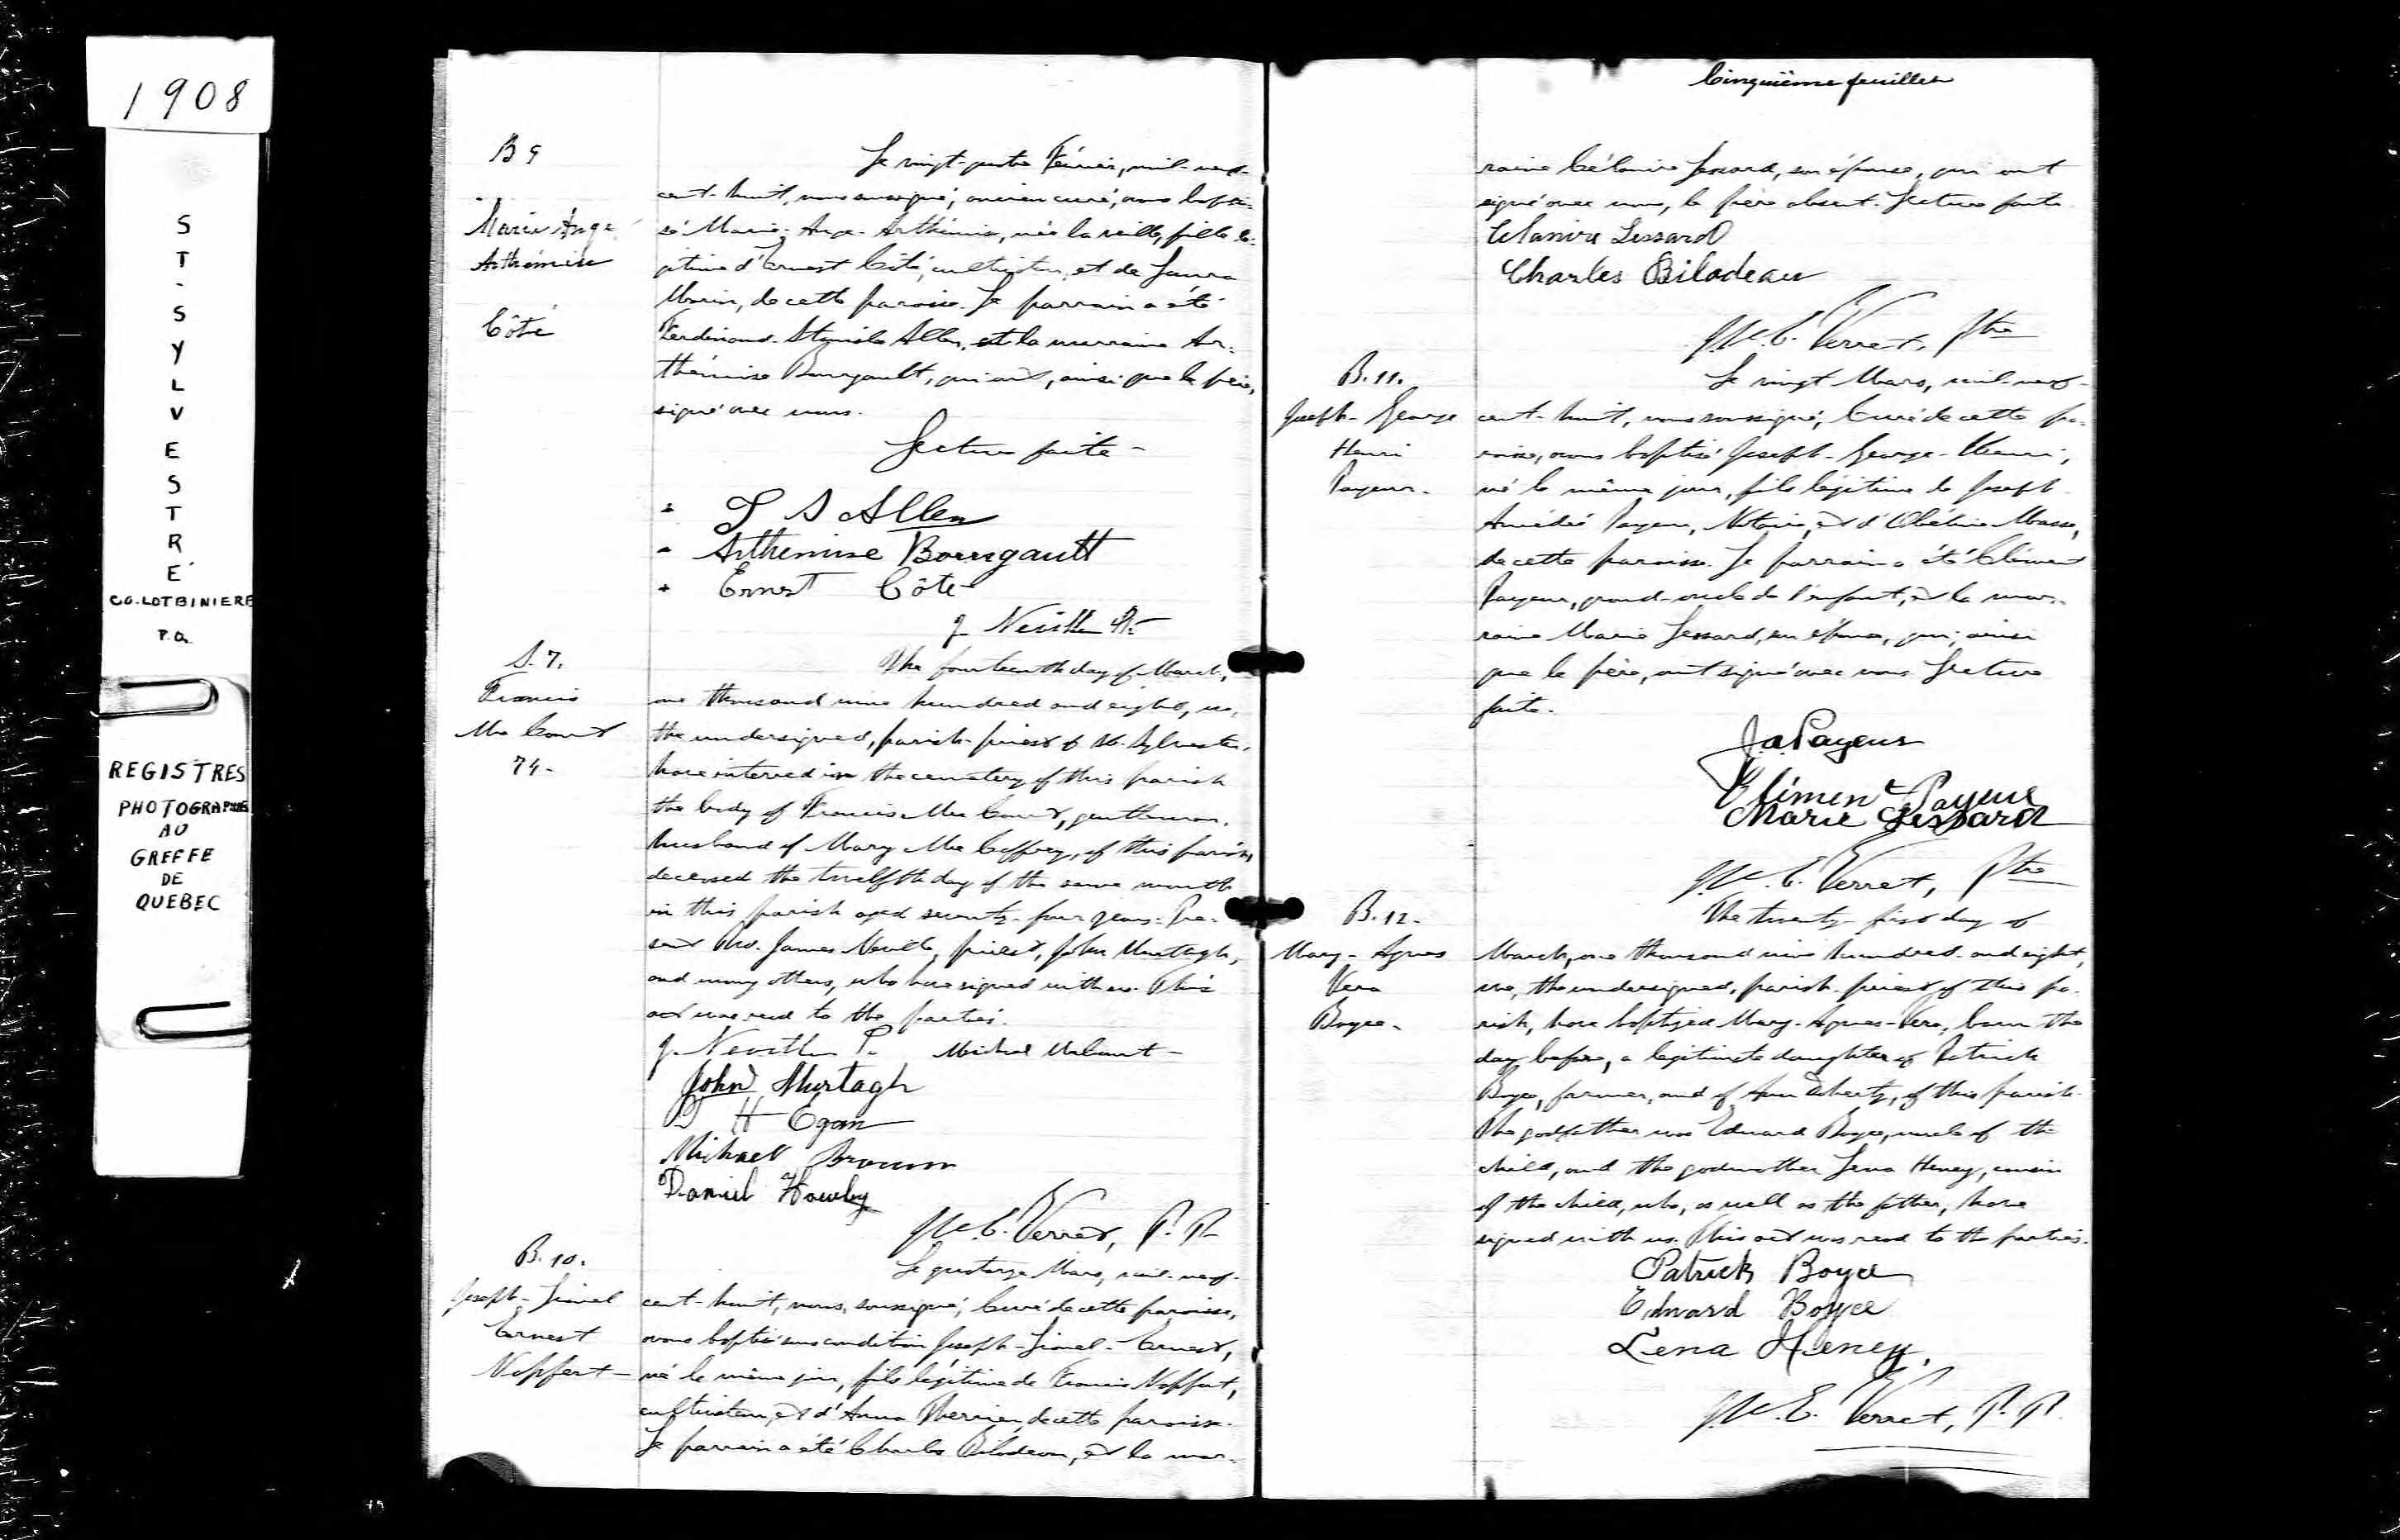 1908
S
T
-
S
Y
L
V
E
S
T
R
E
CO. LOTBINIERE
P.Q.
REGISTRES
PHOTOGRAPHIES
AU
GREFFE
DE
QUEBEC
B 9
Marie Ange
Arthémise
Côté
Le vingt-quatre Février, mil-neuf-
cent-huit, nous soussigné, ancien curé, avons bapti-
sé Marie-Ange-Arthémise, née la veille, fille lé-
gitime d'Ernest Côté, cultivateur, et de Laura
Morin, de cette paroisse. Le parrain a été
Ferdinand-Stanislas Allen, et la marraine Ar-
thémise Bourgault, qui ont, ainsi que le père,
signé avec nous.
Lecture faite-
S Allen
Arthemise Bourgault
Ernest Côté
J. Neville Ptr
S. 7.
Francis
Mc Court
74-
The fourteenth day of March,
one thousand nine hundred and eight, we,
the undersigned, parish-priest of St. Sylvester,
have interred in the cemetery of this parish
the body of Francis Mc Court, gentleman,
husband of Mary Mc Caffrey, of this parish,
deceased the twelfth day of the same month
in this parish aged seventy-four years. Pre-
sent Rev. James Neville, priest, John Murtagh,
and many others, who have signed with us. This
act was read to the parties.
J. Neville P. Michael McCourt
John Murtagh
H Egan
Michael Brown
Daniel Howley
E. Verret, P. P.
B. 10.
Joseph-Lionel
Ernest
Noffert
Le quatorze Mars, mil-neuf-
cent-huit, nous, soussigné, Curé de cette paroisse,
avons baptisé sous condition Joseph-Lionel-Ernest,
né le même jour, fils légitime de Francis Noffert,
cultivateur, et d'Anna Therrien, de cette paroisse.
Le parrain a été Charles Bilodeau, et la mar-
Cinquième feuillet
raine Célanire Lessard, son épouse, qui ont
signé avec nous, le père absent. Lecture faite.
Célanire Lessard
Charles Bilodeau
E. Verret, Ptre
B. 11.
Joseph-George
Henri
Payeur-
Le vingt Mars, mil-neuf-
cent-huit, nous soussigné, Curé de cette pa-
roisse, avons baptisé Joseph-George-Henri,
né le même jour, fils légitime de Joseph
Amédée Payeur, Notaire, et d' Masse,
de cette paroisse. Le parrain a été Clément
Payeur, grand-oncle de l'enfant, et la mar-
raine Marie Lessard, son épouse, qui, ainsi
que le père, ont signé avec nous. Lecture
faite.
J.A. Payeur
Clément Payeur
Marie Lessard
E. Verret, Ptre
B. 12-
Mary-Agnes
Vera
Boyce-
The twenty-first day of
March, one thousand nine hundred and eight,
we, the undersigned, parish-priest of this pa-
rish, have baptized Mary-Agnes-Vera, born the
day before, a legitimate daughter of Patrick
Boyce, farmer, and of Ann Doherty, of this parish.
The godfather was Edward Boyce, uncle of the
child, and the godmother Lena Heney, cousin
of the child, who, as well as the father, have
signed with us. This act was read to the parties.
Patrick Boyce
Edward Boyce
Lena Heney.
E. Verret, P. P.